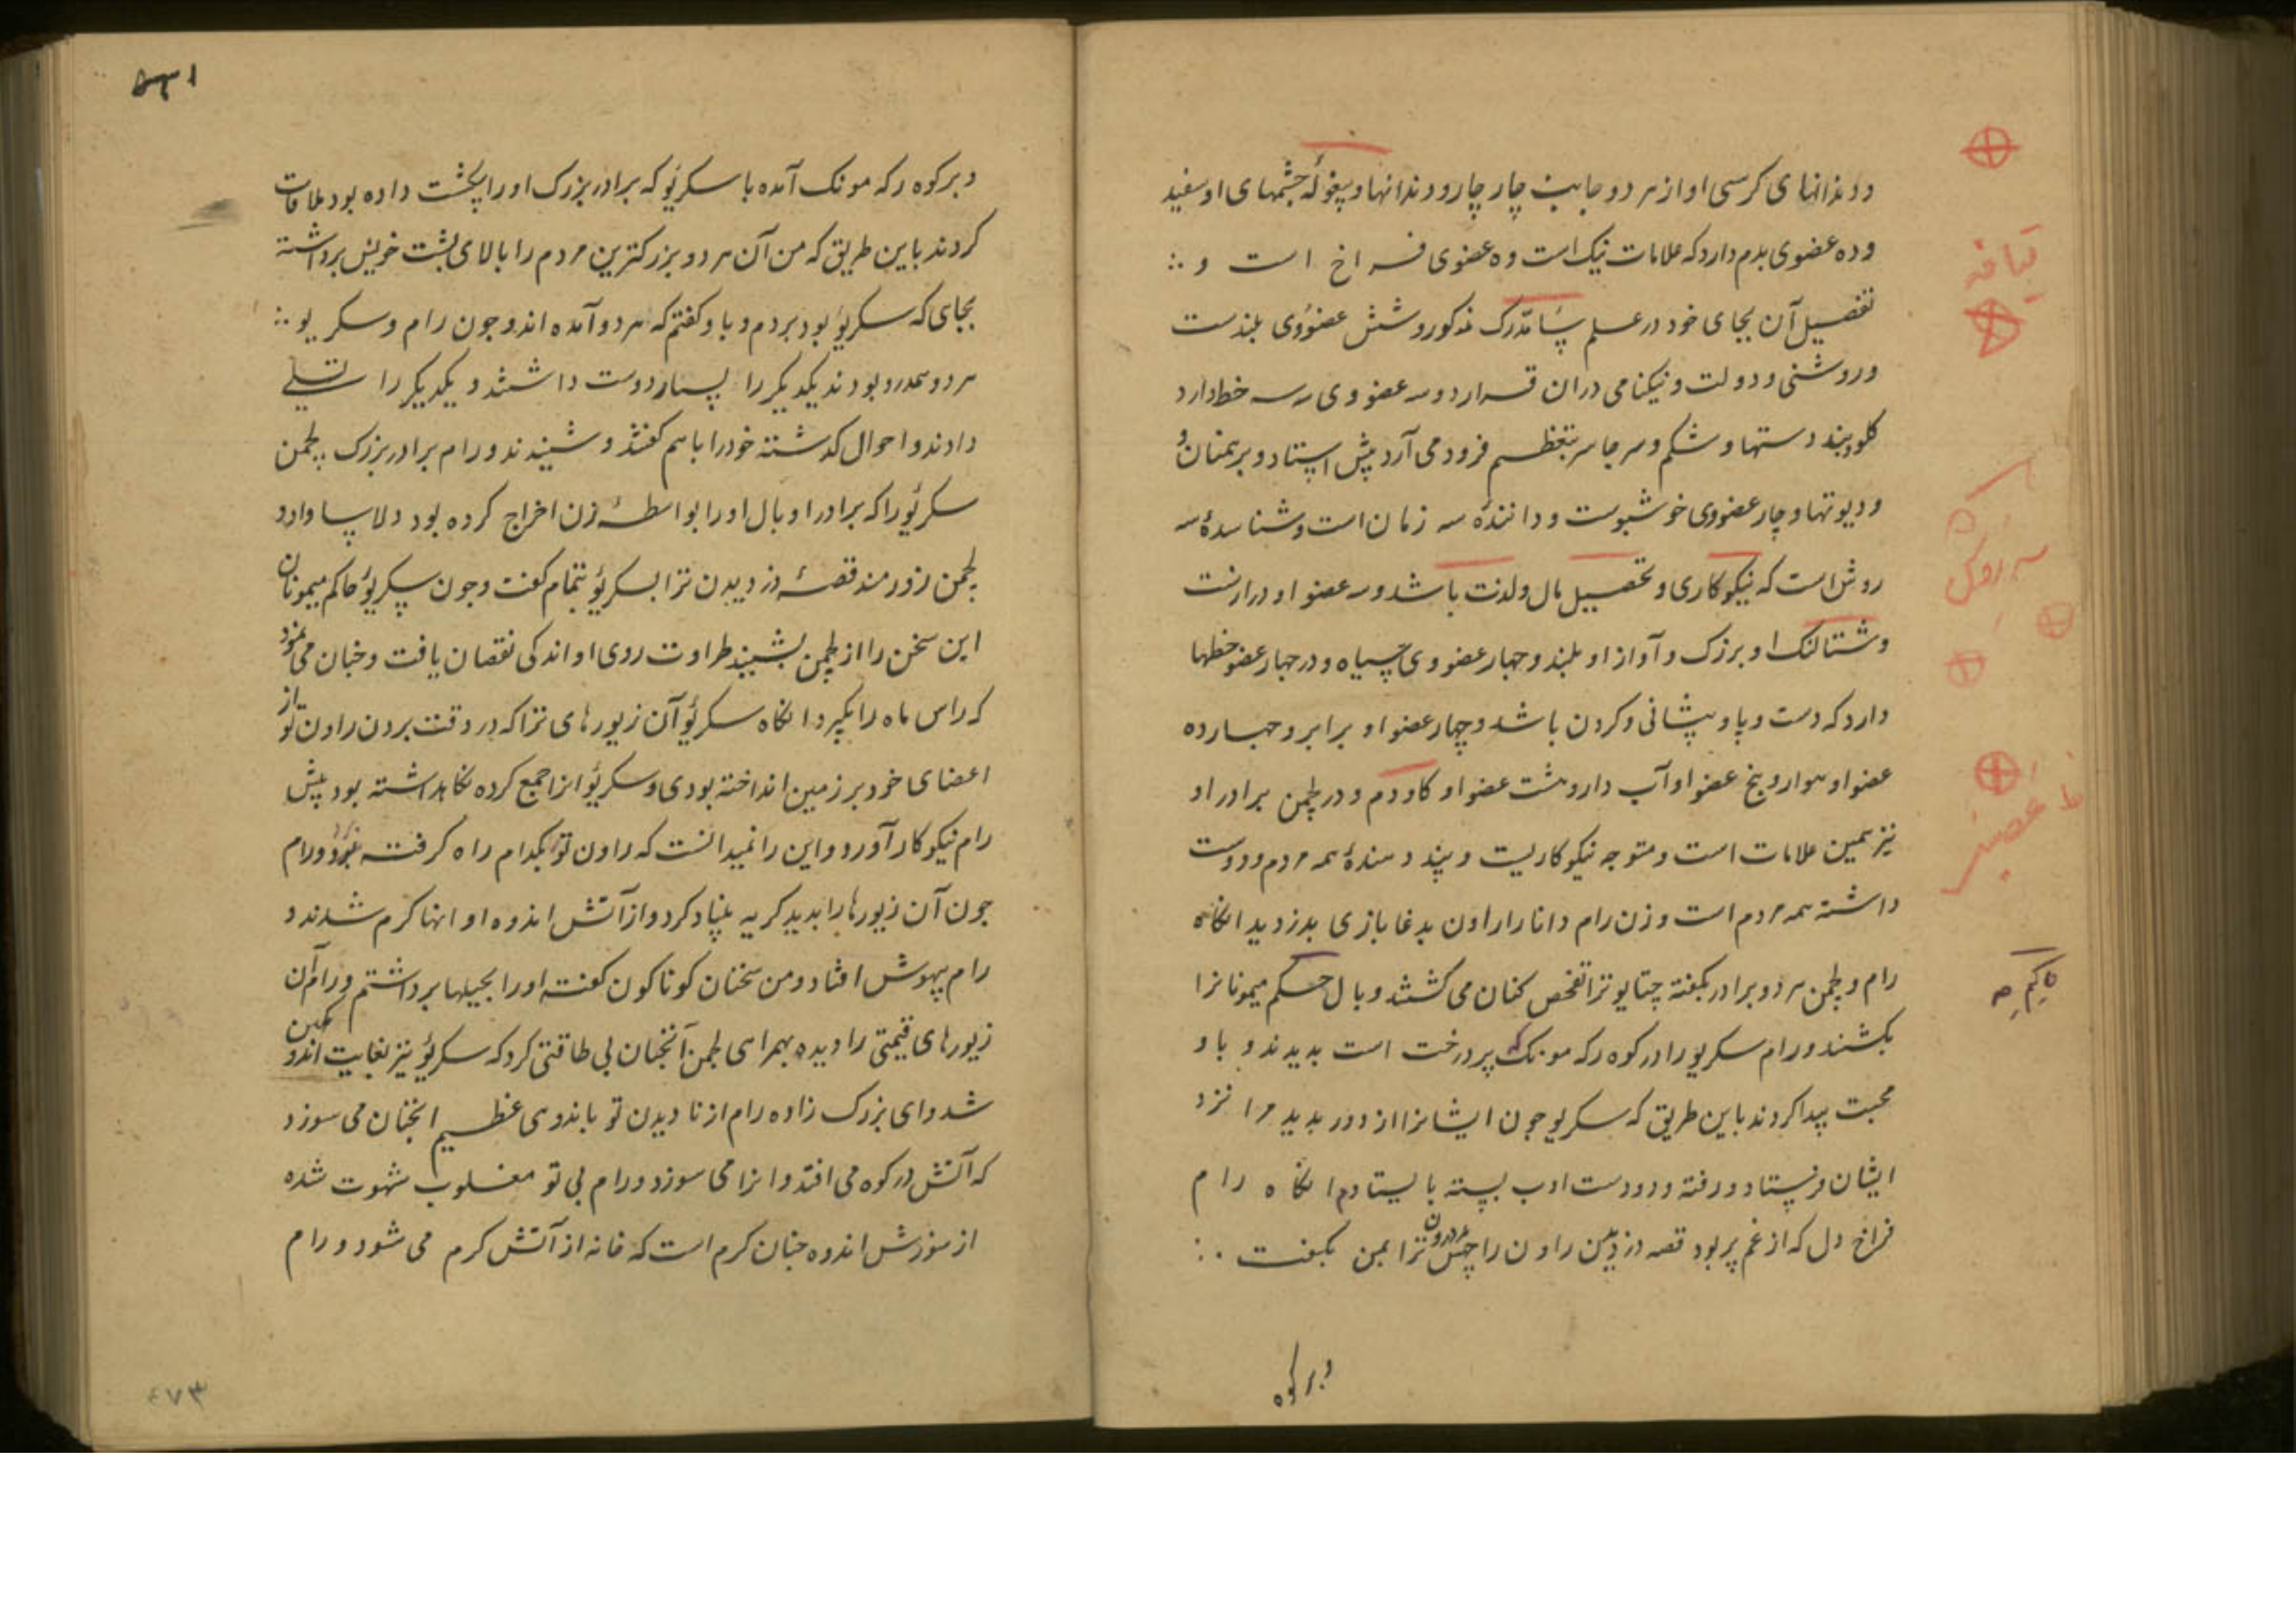 و دندانهای کرسی او از هر دو جانب چار چار و دندانها و پیغوله چشمهای او سفید
و ده عضوی بدم دارد که علامات نیک است و ده عضوی فراخ است و
تفصیل آن بجای خود در علم سامدرک مذکور و شش عضووی بلندست
و روشنی و دولت و نیکنامی در ان قرار دو سه عضو وی سه سه خط دارد
کلو و بند دستها و شکم و هر جا سر بتعظیم فرود می آرد پیش استاد و برهمنان و
و دیوتها و چار عضووی خوشبوست و دانندۀ سه زمان است و شناسدۀ سه
روش است که نیکوکاری و تحصیل مال و لذت باشد و سه عضو او درازست
و شتالنک او بزرک و آواز او بلند و چهار عضو وی سیاه و در چهار عضو خطها
دارد که دست و پا و پیشانی و کردن باشد و چهار عضو او برابر و چهارده
عضو او هموار و پنج عضو او آب دار و هشت عضو او کاودم و در لچمن برادر او
نیز همین علامات است و متوجه نیکوکاریست و پند دهندۀ همه مردم و دوست
داشته همه مردم است و زن رام دانا را راون بدغابازی بدزدید انکاه
رام و لچمن هر دو برادر بکفته جتایو ترا تفحص کنان می کشتند و بال حکم میمونانرا
بکشند و رام سکریو را در کوه رکه مونک که پر درخت است بدیدند و با و
محبت پیدا کردند باین طریق که سکریو چون ایشانرا از دور بدید مرا نزد
ایشان فرستاد و رفته و دو دست ادب بسته بایستادم انکاه رام
فراخ دل که از غم پر بود قصه دزدیدن راون را ترا بمن بکفت
در کوه
قیافه
۵۳۱
در کوه رکه مونک آمده با سکریو که برادر بزرک او را پکشت داده بود ملاقات
کردند باین طریق که من آن هر دو بزرکترین مردم را بالای پشت خویش برداشته
بجای که سکریو بود بردم و با و کفتم که هر دو آمده اند و چون رام و سکریو
هر دو همدرد بودند یکدیکر را بسیار دوست داشتند و یکدیکر را تسلی
دادند و احوال کذشته خود را باهم کفتند و شنیدند و رام برادر بزرک لچمن
سکریو را که برادر او بال او را بواسطۀ زن اخراج کرده بود دلاسا داد و
لچمن زورمند قصۀ دزدیدن ترا بسکریو بتمام کفت و چون سکریو حاکم میمونان
این سخن را از لچمن بشنید طراوت روی او اندکی نقصان یافت و چنان می نمود
که راس ماه را بگیرد انکاه سکریو آن زیورهای ترا که در وقت بردن راون تو از
اعضای خود بر زمین انداخته بودی و سکریو انرا جمع کرده نکاهداشته بود پیش
رام نیکوکار آورد و این را نمیدانست که راون تو بکدام راه کرفته بود و رام
چون آن زیورها را بدید کریه بنیاد کرد و از آتش اندوه او انها کرم شدند و
رام بیهوش افتاد و من سخنان کوناکون کفته او را بحیلها برداشتم و رام آن
زیورهای قیمتی را دیده بهمراهی لچمن آنچنان بی طاقتی کرد که سکریو نیز بغایت اندوهکین
شد و ای بزرک زاده رام از نادیدن تو باندوهی عظیم انچنان می سوزد
که آتش در کوه می افتد و انرا می سوزد و رام بی تو مغلوب شهوت شده
از سوزش اندوه چنان کرم است که خانه از آتش کرم می شود و رام
۴۷۳